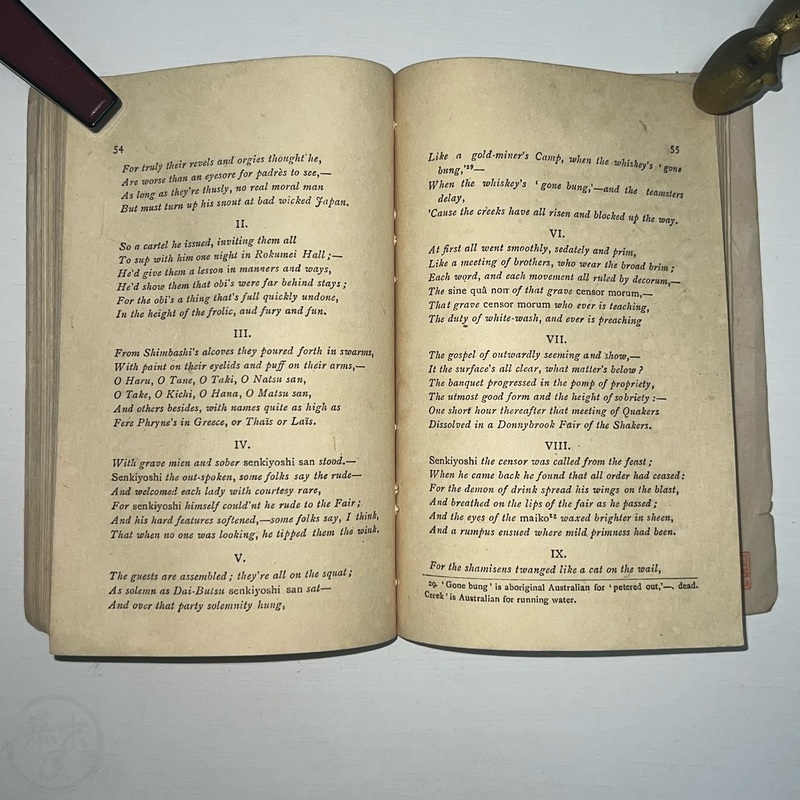 54
For truly their revels and orgies thought he,
Are worse than an eyesore for padrès to see,—
As long as they're thusly, no real moral man
But must turn up his snout at bad wicked Japan.
II.
So a cartel he issued, inviting them all
To sup with him one night in Rokumei Hall;—
He'd give them a lesson in manners and ways,
He'd show them that obi's were far behind stays;
For the obi's a thing that's full quickly undone,
In the height of the frolic, aud fury and fun.
III.
From Shimbashi's alcoves they poured forth in swarms,
With paint on their eyelids and puff on their arms,—
O Haru, O Tane, O Taki, O Natsu san,
O Take, O Kichi, O Hana, O Matsu san,
And others besides, with names quite as high as
Fere Phryne's in Greece, or Thaïs or Laïs.
IV.
With grave mien and sober senkiyoshi san stood.—
Senkiyoshi the out-spoken, some folks say the rude—
And welcomed each lady with courtesy rare,
For senkiyoshi himself could'nt be rude to the Fair;
And his hard features softened,—some folks say, I think,
That when no one was looking, he tipped them the wink.
V.
The guests are assembled; they're all on the squat;
As solemn as Dai-Butsu senkiyoshi san sat—
And over that party solemnity hung,
55
Like a gold-miner's Camp, when the whiskey's 'gone
bung,'²⁹—
When the whiskey's 'gone bung,'—and the teamsters
delay,
'Cause the creeks have all risen and blocked up the way.
VI.
At first all went smoothly, sedately and prim,
Like a meeting of brothers, who wear the broad brim;
Each word, and each movement all ruled by decorum,—
The sine quâ non of that grave censor morum,—
That grave censor morum who ever is teaching,
The duty of white-wash, and ever is preaching
VII.
The gospel of outwardly seeming and show,—
It the surface's all clear, what matter's below?
The banquet progressed in the pomp of propriety,
The utmost good form and the height of sobriety:—
One short hour thereafter that meeting of Quakers
Dissolved in a Donnybrook Fair of the Shakers.
VIII.
Senkiyoshi the censor was called from the feast;
When he came back he found that all order had ceased:
For the demon of drink spread his wings on the blast,
And breathed on the lips of the fair as he passed;
And the eyes of the maiko waxed brighter in sheen,
And a rumpus ensued where mild primness had been.
IX.
For the shamisens twanged like a cat on the wail,
29. 'Gone bung' is aboriginal Australian for 'petered out,'—. dead.
Cerek' is Australian for running water.